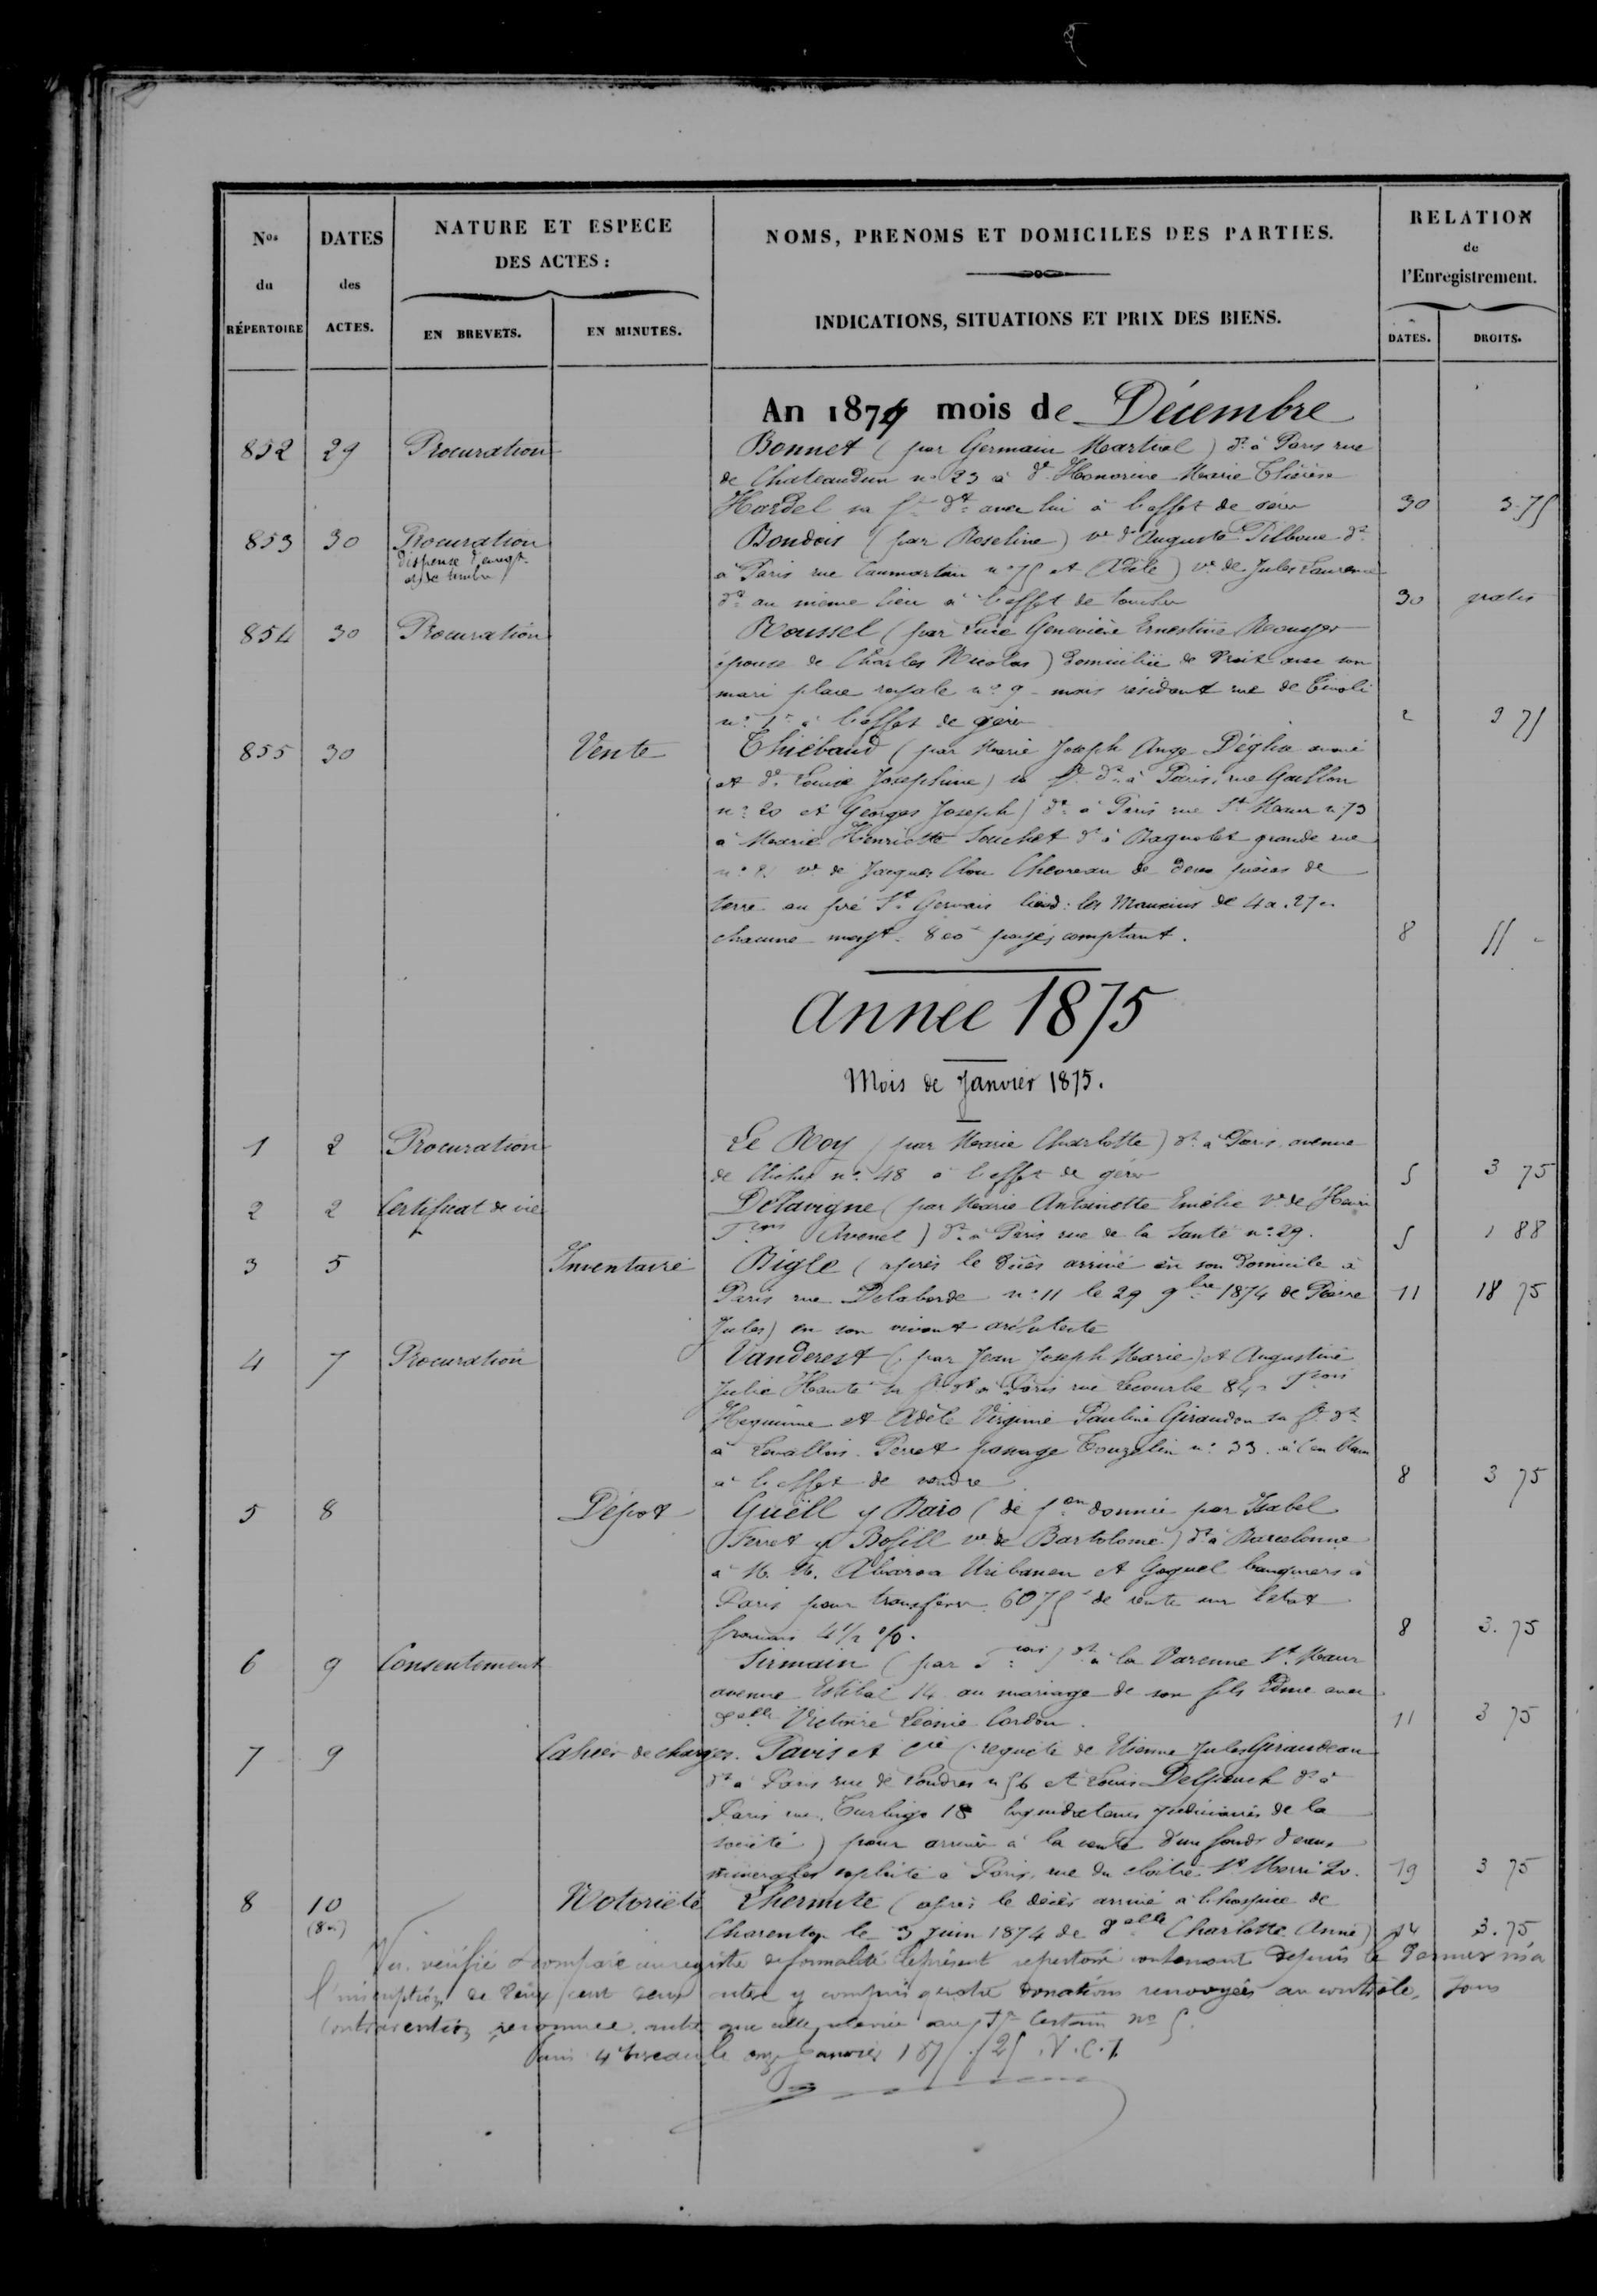 Nos du RÉPERTOIRE
DATES des ACTES.
NATURE ET ESPECE DES ACTES :
EN BREVETS.
EN MINUTES.
NOMS, PRENOMS ET DOMICILES DES PARTIES.
INDICATIONS, SITUATIONS ET PRIX DES BIENS.
RELATION de l'Enregistrement.
DATES.
DROITS.
An 1874 mois de Décembre
852 29 Procuration Bonnet (par Germain Martial) dt à Paris rue
de Chateaudun no 23 à de Honorine Marie Thérèse
Hardel sa fe dt avec lui à l'effet de 30 3.75
853 30 Procuration Bondois (par Roseline) ve d'Auguste dt
dispense d'enregt
et de timbre
à Paris rue Caumartin no 75 et Adèle) ve de Jules Laurence
dt au même lieu à l'effet de toucher 30 gratis
854 30 Procuration Roussel (par Geneviève Ernestine
épouse de Charles Nicolas) domiciliée de droit avec son
mari place royale no 9 mais résidant rue de
no 1 à l'effet de gérer 2 3 75
855 30 Vente Thiébaud (par Marie Joseph Ange
et de Louise Josephine) sa fe dt à Paris, rue Gaillon
no 20 et Georges Joseph) dt à Paris rue St Maur no 73
à Marie Henriette Souchet dt à Bagnolet grande rue
no ve de Jacques Chevreau de deux pièces de
terre au pré St Gervais lieud: les de 4a.27c
chacune moyt 800f payés comptant. 8 11 -
Année 1875
Mois de Janvier 1875.
1 2 Procuration Le Roy (par Marie Charlotte) dt à Paris avenue
de Clichy no 48 à l'effet de gérer 5 3 75
2 2 Certificat de vie Delavigne (par Marie Antoinette Emélie ve de Henri
Avenel) dt à Paris rue de la Santé no 29. 5 1 88
3 5 Inventaire Bigle (après le décès arrivé en son domicile à
Paris rue Delaborde no 11 le 29 9bre 1874 de Pierre 11 18 75
Jules) en son vivant architecte
4 7 Procuration Vanderest (par Jean Joseph Marie) et Augustine
Julie sa fe dt à Paris rue Lecourbe 84
et Adèle Virginie Pauline Giraudon sa fe dt
à Levallois Perret passage no 33. en blanc
à l'effet de vendre 8 3 75
5 8 Dépot Guëll y Baro (de pon donnée par Isabel
Ferret y Bofill ve de Bartolomé) dt à Barcelonne
à M. M. Abaroa Uribarren et Goguel banquiers à
Paris pour transférer 6075f de rente sur l'état
français 4 1/2 %. 8 3.75
6 9 Consentement Sirmain (par dt à la Varenne St Maur
avenue 14 au mariage de son fils avec
delle Victoire Léonie Cordon. 11 3 75
7 9 Cahier de charges. Pavis et Cie (requête de Etienne Jules Giraudeau
dt à Paris rue de Londres no 56 et Louis Delpeuch dt à
Paris rue Turbigo 18 liquidateurs judiciaires de la
société) pour arriver à la vente d'un fonds d'eaux
minérales exploité à Paris, rue du cloître St Merri 20. 19 3 75
8 10 Notoriété Lhermite (après le décès arrivé à l'hospice de
Charenton le 3 Juin 1874 de delle Charlotte Anne) 14 3.75
Vu, vérifié & comparé au registre de formalité le présent répertoire contenant depuis le dernier visa
l'inscription de deux cent deux actes y compris quatre donations renvoyées au contrôle, sans
contravention reconnue, autre que celle
Paris 4e bureau le onze janvier 1875